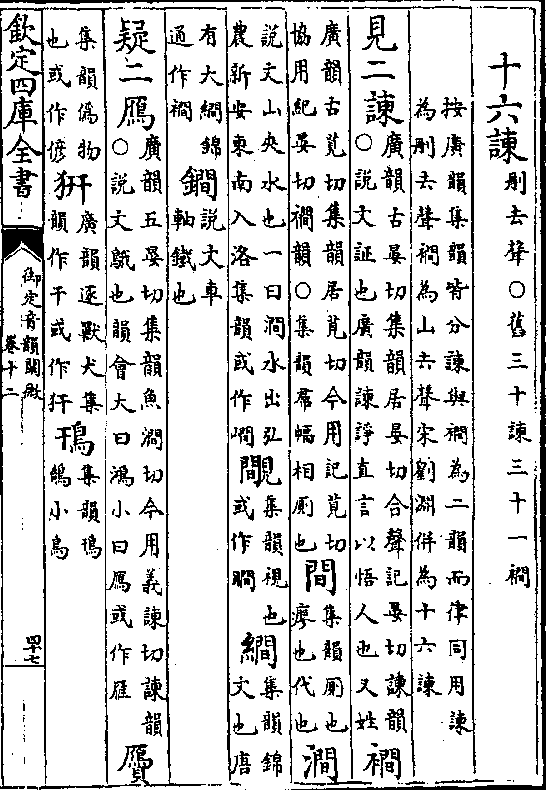 十六諫刪去聲○舊三十諫三十一襇
按廣韻集韻皆分諫與襇為二韻而律同用諫
為刪去聲襇為山去聲宋劉淵併為十六諫
見二諫廣韻古晏切集韻居晏切合聲記晏切諫韻○說文証也廣韻諫諍直言以悟人也又姓 襇
廣韻古莧切集韻居莧切今用記莧切協用紀晏切襇韻○集韻帬幅相厠也 間集韻厠也廖也代也 澗
說文山夾水也一曰澗水出弘農新安東南入洛集韻或作㵎 覸集韻視也或作瞷 繝集韻錦文也唐
有大繝錦通作襇 鐧說文車軸鐵也
疑二鴈廣韻五晏切集韻魚澗切今用義諫切諫韻○說文䳘也韻會大曰鴻小曰鴈或作雁 贗
集韻偽物也或作偐 豻廣韻逐獸犬集韻作干或作犴 鳱集韻鳱鵠小鳥
欽定四庫全書 御定音韻闡微 卷十二 四十七